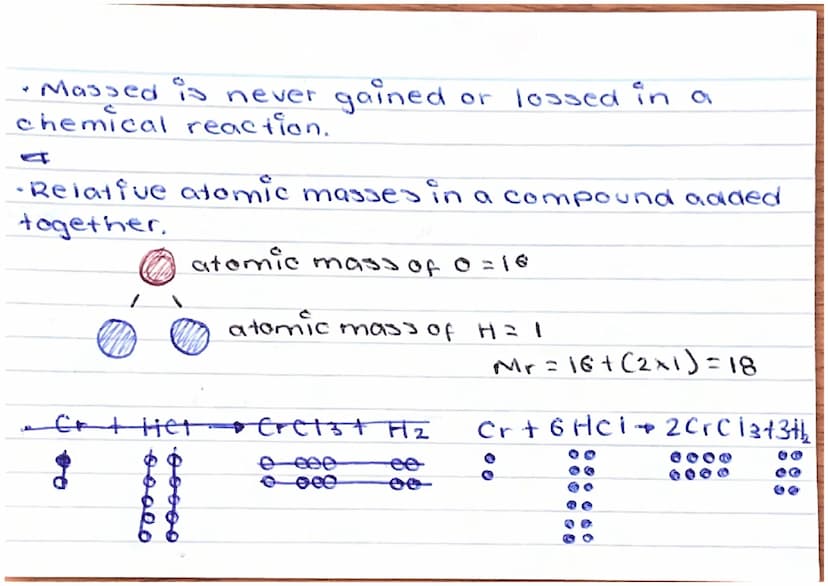 · Massed is never gained or lossed in a
chemical reaction.
· Relative atomic masses in a compound added
together.
atomic mass of O = 16
atomic mass of H = 1
Mr = 16 + (2×1) = 18
Cr + HCl → CrCl3 + H2
Cr + 6 HCl → 2CrCl3+3H2